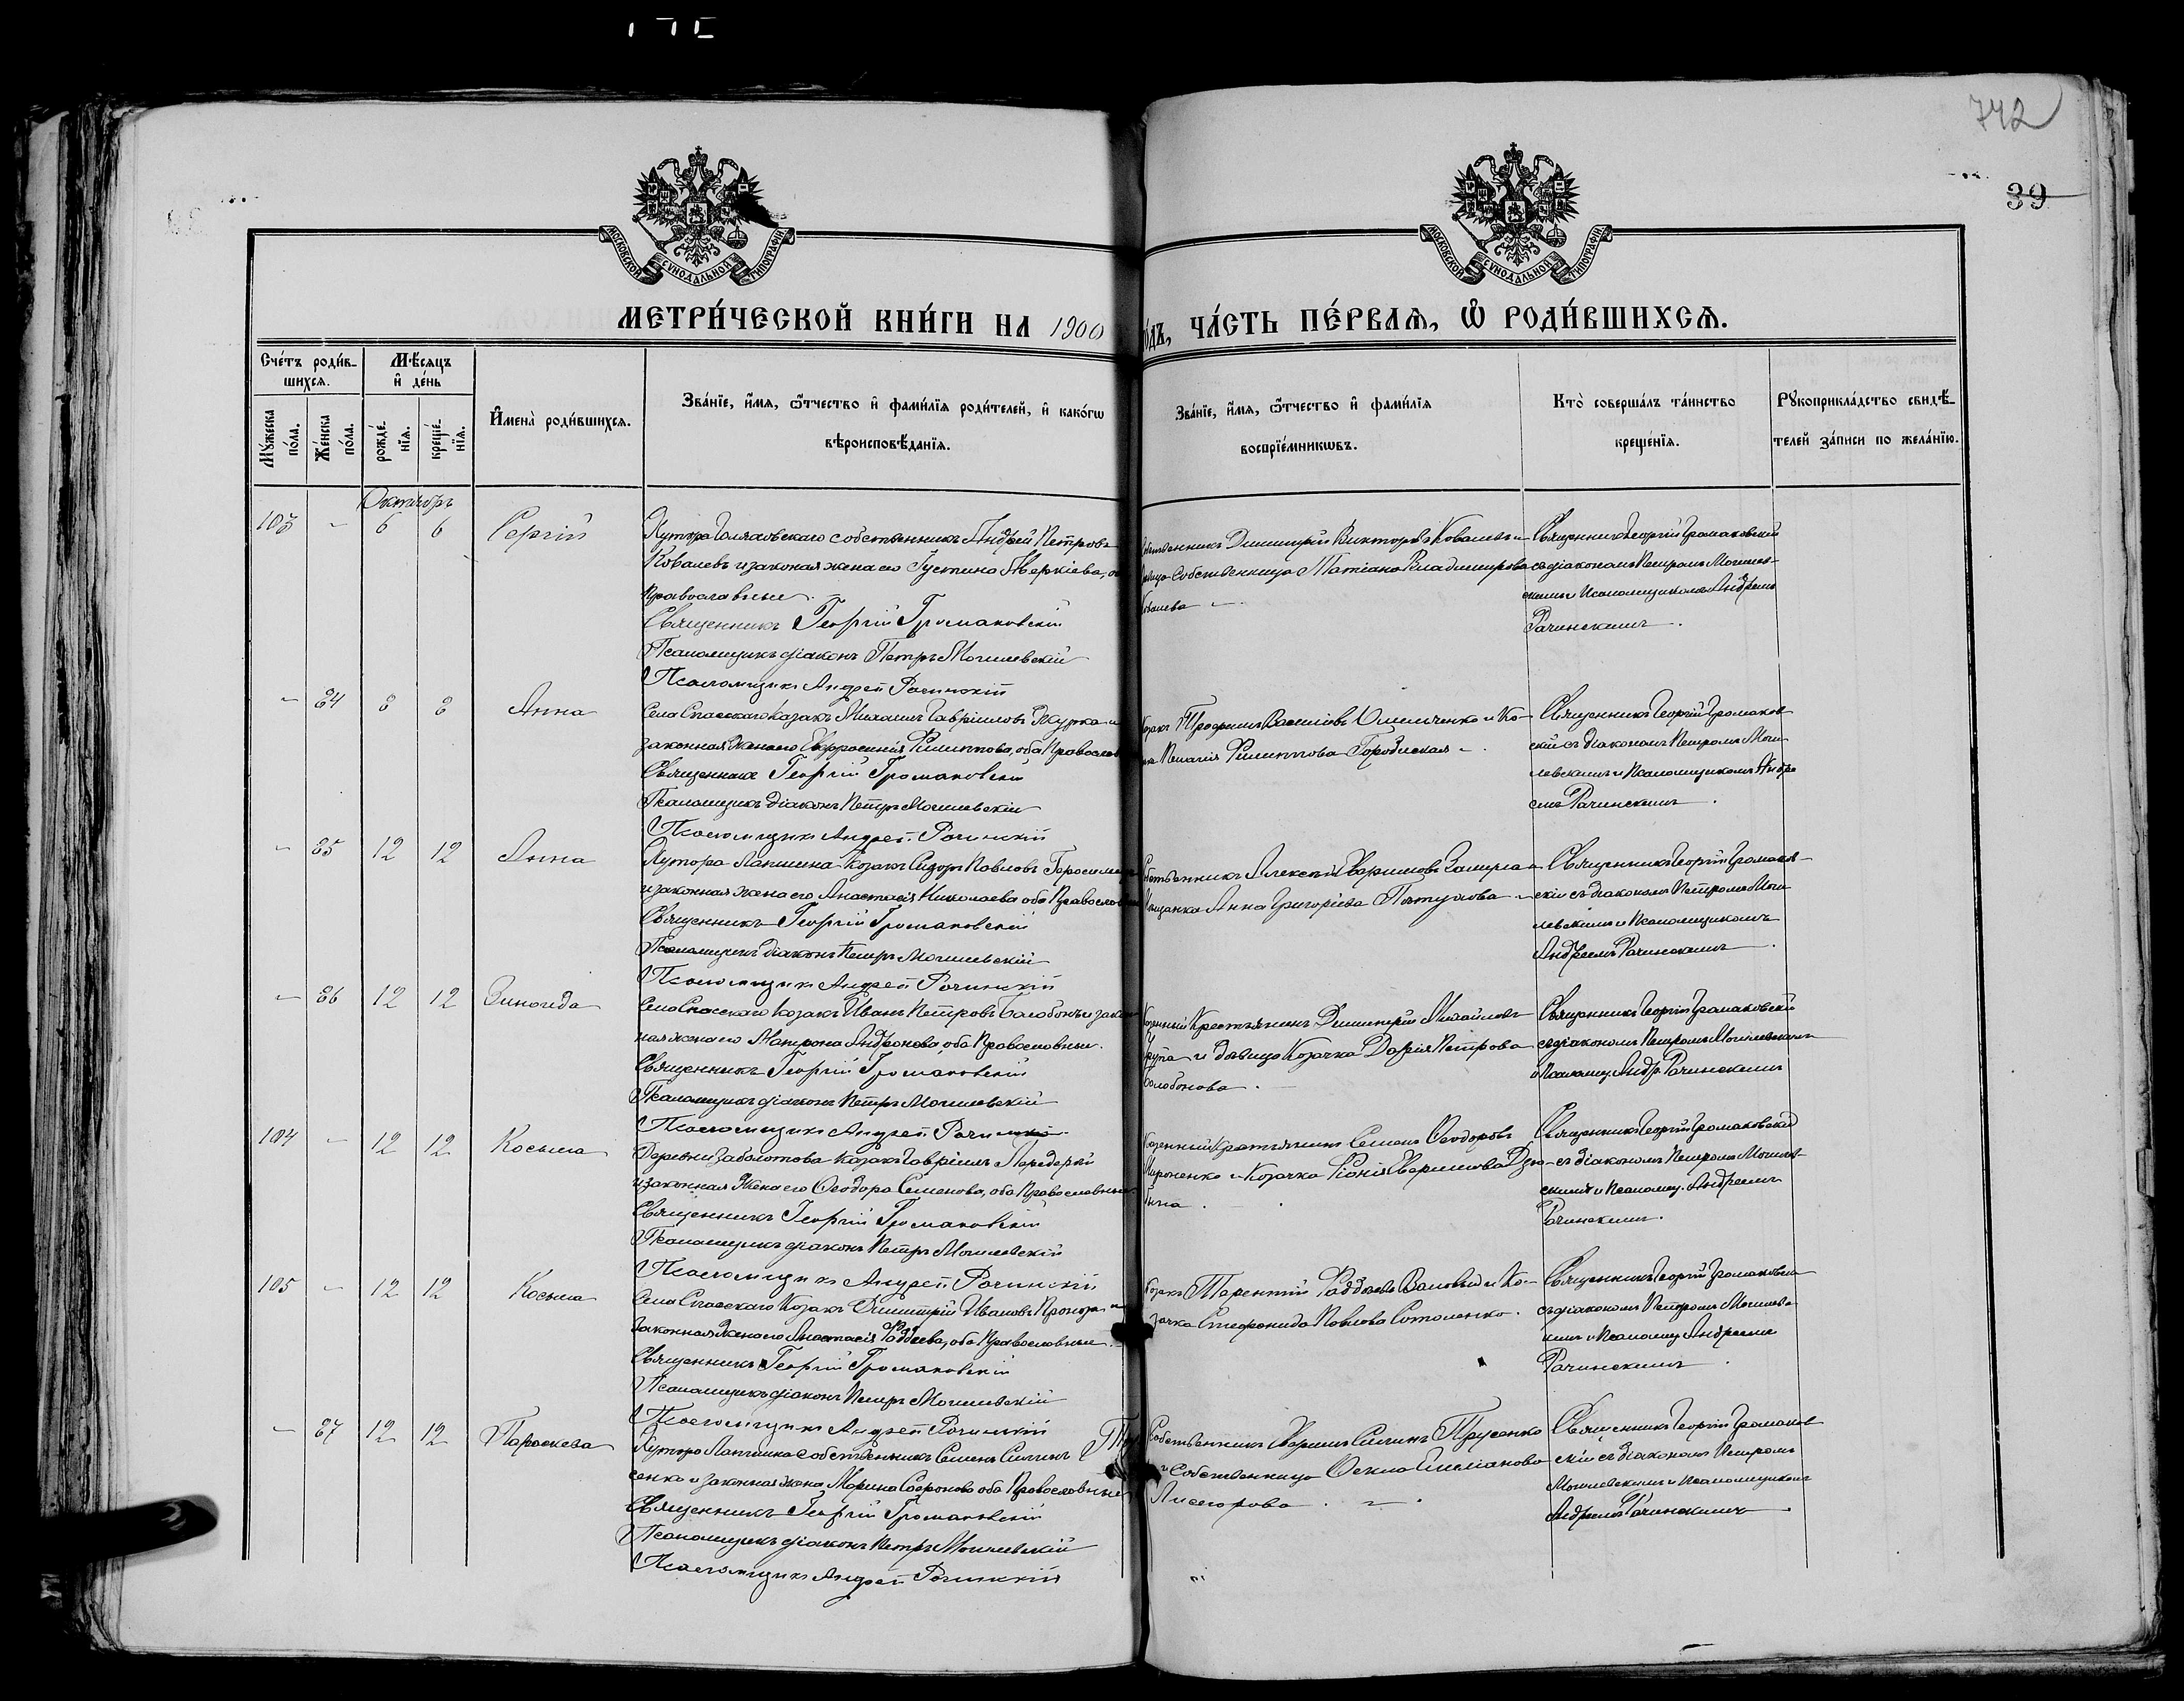 742
39
МОСКОВСКОЙ СУНОДАЛЬНОЙ ТИПОГРАФІИ
МОСКОВСКОЙ СУНОДАЛЬНОЙ ТИПОГРАФІИ
МЕТРИ́ЧЕСКОЙ КНИ́ГИ НА 1900
ГО́ДЪ, ЧА́СТЬ ПЕ́РВАѦ, Ѡ҆ РОДИ́ВШИХСѦ.
Сче́тъ роди́в-
шихсѧ.
Мѣ́сѧцъ
и҆ де́нь
Мꙋ́жеска
по́ла.
Же́нска
по́ла.
рожде́-
нїѧ.
креще́-
нїѧ.
И҆мена̀ роди́вшихсѧ.
Зва́нїе, и҆́мѧ, ѻ҆́тчество и҆ фами́лїѧ роди́телей, и҆ како́гѡ
вѣроисповѣ́данїѧ.
Зва́нїе, и҆́мѧ, ѻ҆́тчество и҆ фами́лїѧ
воспрїе́мникѡвъ.
Кто̀ соверша́лъ та́инство
креще́нїѧ.
Рꙋкоприкла́дство свидѣ́-
телей за́писи по жела́нїю.
Октябрь
103 - 6 6 Сергій
Хутора собственникъ Андрей Петровъ
Ковалевъ и законая жена его Густина Аверкіева, об
Православные.
Священникъ Георгій Громаковскій
Псаломщикъ діаконъ Петръ Могилевскій
Псаломщикъ Андрей Рачинскій
Собственникъ Димитрій Викторовъ Ковалевъ и
дѣвица-Собственница Татіана Владимирова
Ковалева
Священникъ Георгій Громаковскій
съ діакономъ Петромъ Могилев-
скимъ и Псаломщикомъ Андреемъ
Рачинскимъ.
- 84 8 8 Анна
Села Спасскаго Козакъ Михаилъ Гавріиловъ и
законная жена его Евфросинія Филиппова, оба Православ
Священникъ Георгій Громаковскій
Псаломщикъ діаконъ Петръ Могилевскій
Псаломщикъ Андрей Рачинскій
Козакъ Трофимъ Василіовъ и Ко-
Пелагія Филиппова Городиская
Священникъ Георгій Громаков-
скій съ діакономъ Петромъ Моги-
левскимъ и Псаломщикомъ Андре
емъ Рачинскимъ.
- 85 12 12 Анна
Хутора Лапшина Козакъ Сидоръ Павловъ
и законная жена его Анастасія Николаева оба Православ
Священникъ Георгій Громаковскій
Псаломщикъ діаконъ Петръ Могилевскій
Псаломщикъ Андрей Рачинскій
Собственникъ Алексѣй
Анна Григоріева
Священникъ Георгій Громаков-
скій съ діакономъ Петромъ Моги
левскимъ и Псаломщикомъ
Андреемъ Рачинскимъ.
- 86 12 12 Зинаида
Села Спасскаго Козакъ Иванъ Петровъ Балобонъ и закон
ная жена его Матрона Андронова, оба Православные.
Священникъ Георгій Громаковскій
Псаломщикъ діаконъ Петръ Могилевскій
Псаломщикъ Андрей Рачинскій
Казенный Крестьянинъ Димитрій Михайловъ
и дѣвица Козачка Дарія Петрова
Балобонова.
Священникъ Георгій Громаковскій
съ діакономъ Петромъ Могилевскимъ
и Псаломщ. Андр. Рачинскимъ
104 - 12 12 Косьма
Деревни Заболотова Казакъ Гавріилъ Передерій
и законная жена его Ѳеодора Семенова, оба Православные
Священникъ Георгій Громаковскій
Псаломщикъ діаконъ Петръ Могилевскій
Псаломщикъ Андрей Рачинскій
Казенный Крестьянинъ Семенъ Ѳеодоровъ
Мироненко и Козачка
Священникъ Георгій Громаковскій
съ діакономъ Петромъ Могилев-
скимъ и Псаломщ. Андреемъ
Рачинскимъ.
105 - 12 12 Косьма
Села Спасскаго Козакъ Димитрій Ивановъ и
законная жена его Анастасія Фаддеева, оба Православные.
Священникъ Георгій Громаковскій
Псаломщикъ діаконъ Петръ Могилевскій
Псаломщикъ Андрей Рачинскій
Козакъ Терентій Фаддеевъ и Ко-
зачка Стефанида Павлова
Священникъ Георгій Громаковскій
съ діакономъ Петромъ Могилевс
кимъ и Псаломщ. Андреемъ
Рачинскимъ.
- 87 12 12 Параскева
Хутора Лапшина собственникъ Семенъ Силинъ Тру
сенко и законная жена Марина Софронова оба Православные
Священникъ Георгій Громаковскій
Псаломщикъ діаконъ Петръ Могилевскій
Псаломщикъ Андрей Рачинскій
Собственникъ Силинъ Трусенко
и Собственница Емеліанова
Лисогорова.
Священникъ Георгій Громаков
скій съ діакономъ Петромъ
Могилевскимъ и Псаломщикомъ
Андреемъ Рачинскимъ.